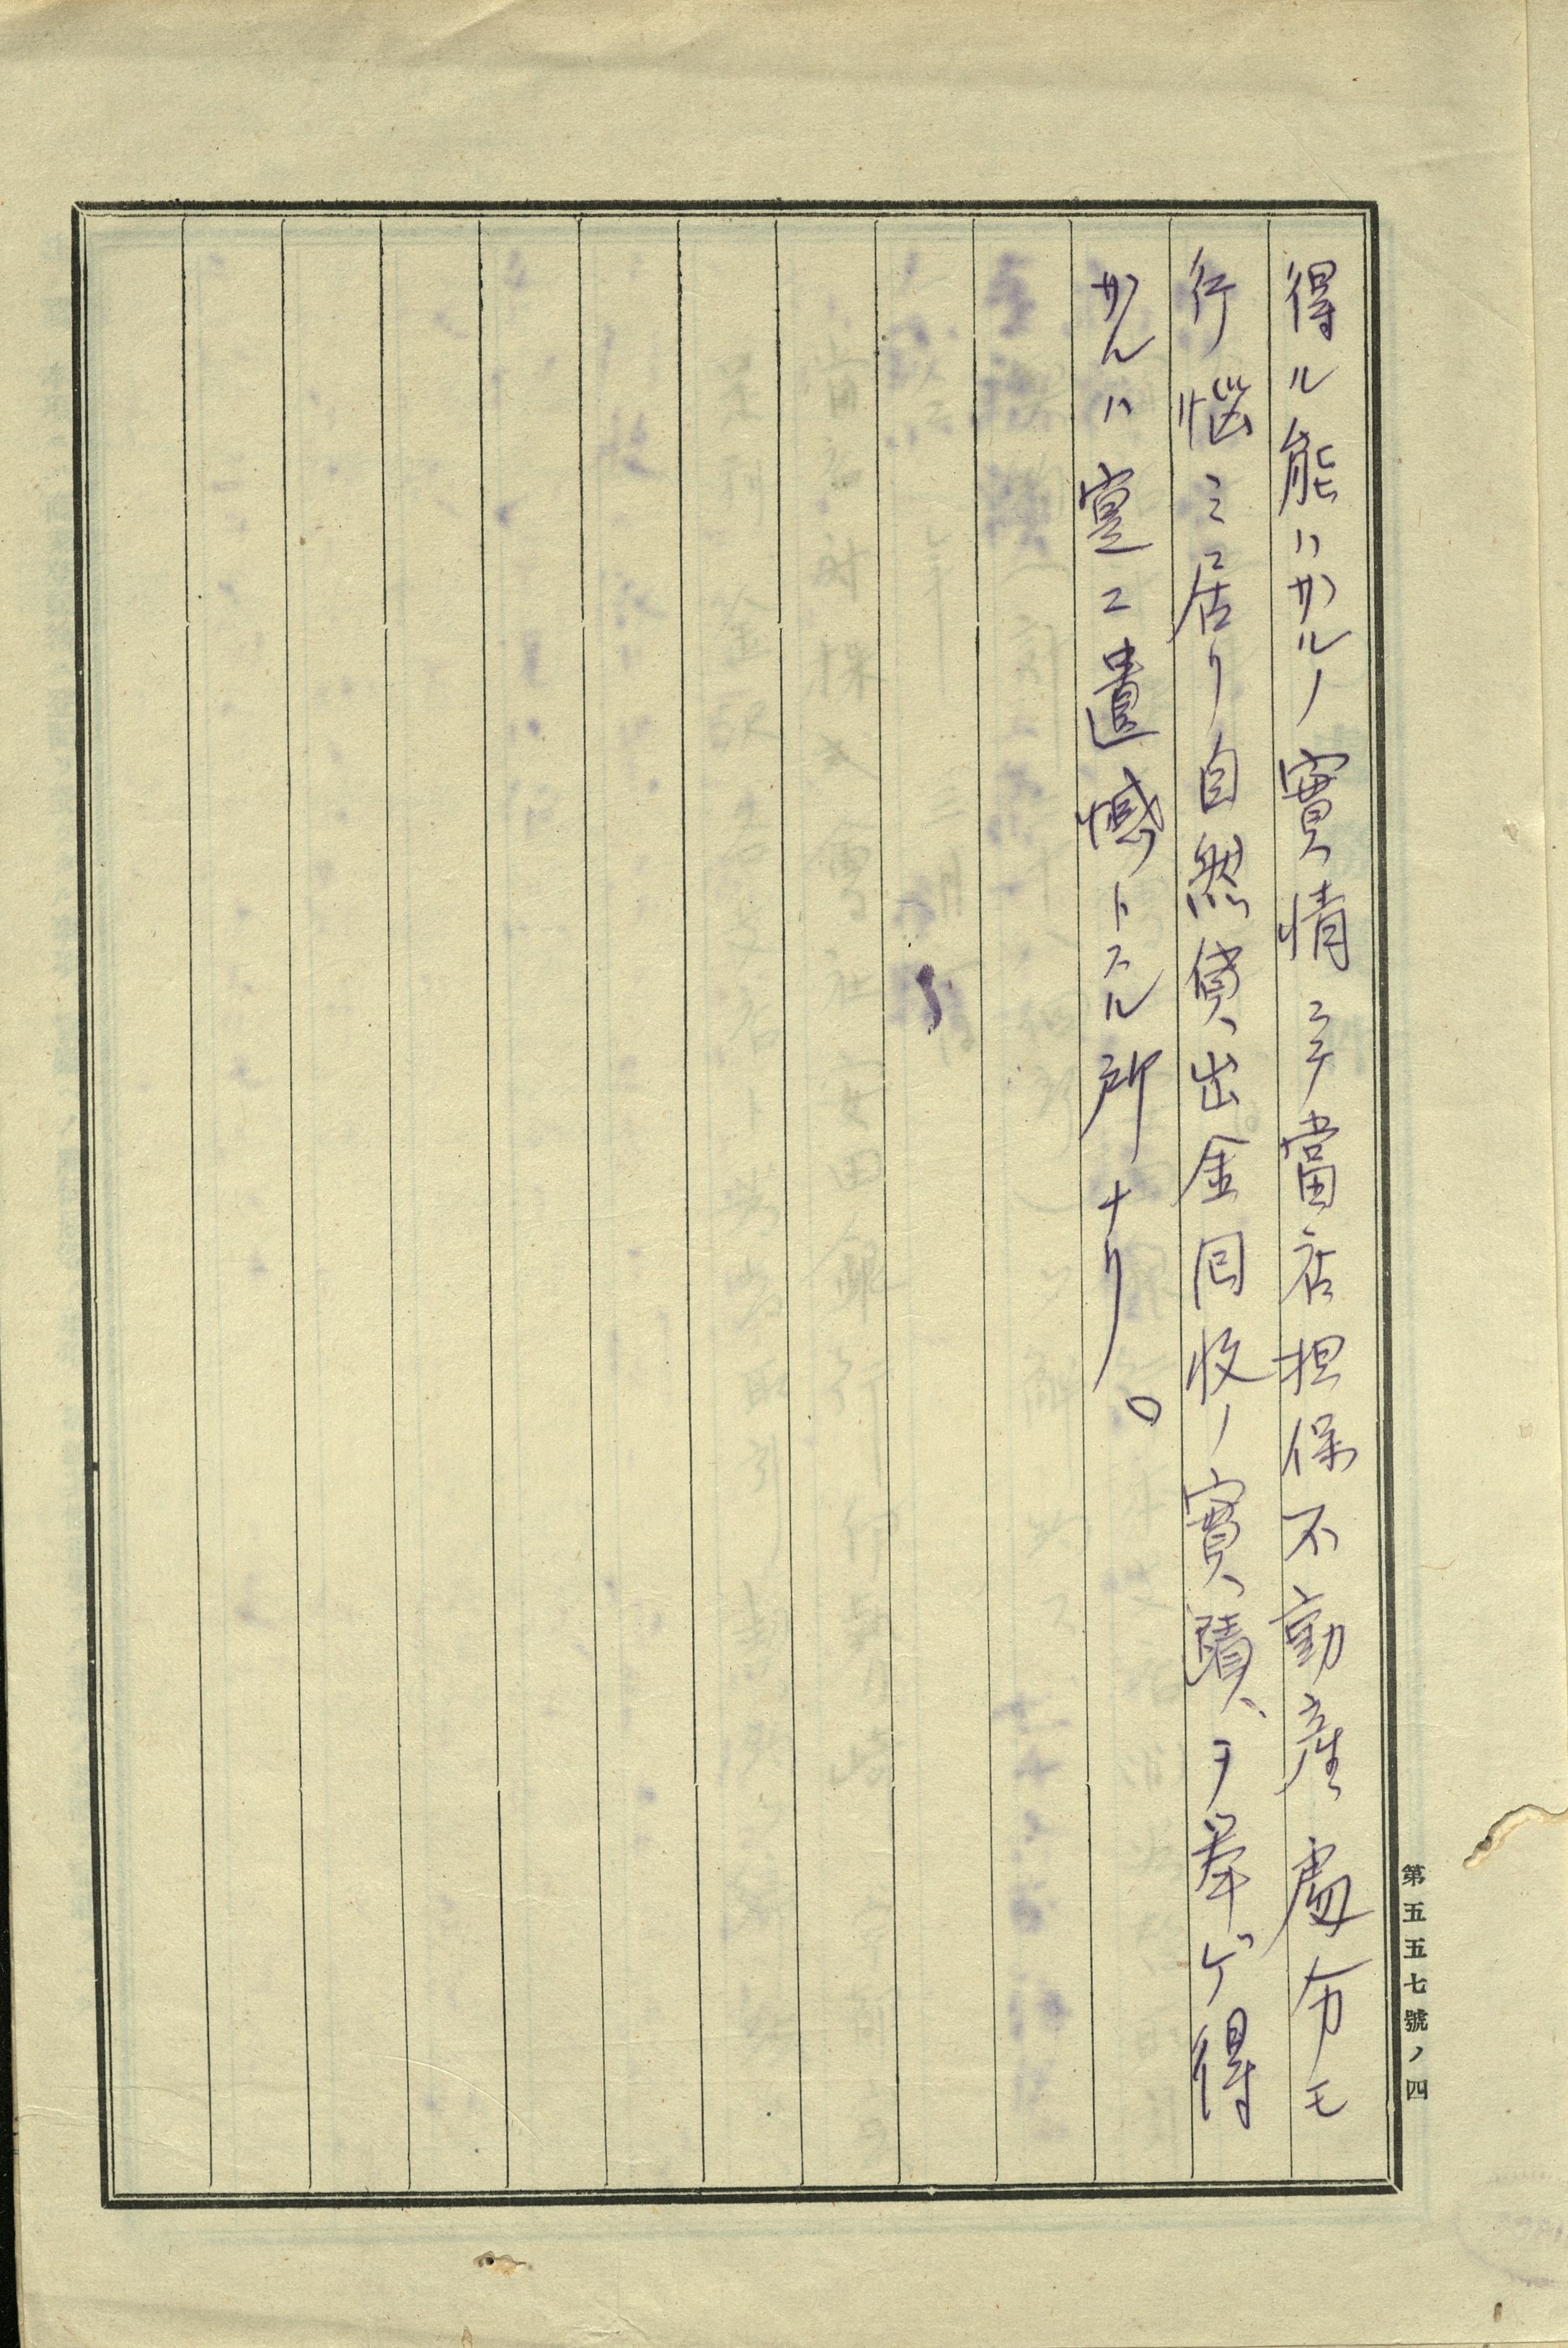 得ル能ハサルノ實情ニテ當店担保不動産處分モ
行悩ミ居リ自然貸出金回收ノ實蹟ヲ挙ゲ得
サルハ寔ニ遺憾トスル所ナリ。
第五五七號ノ四